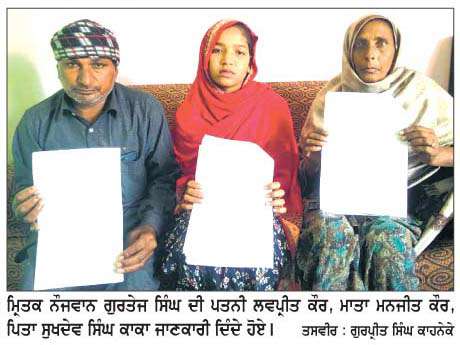 ਮ੍ਰਿਤਕ ਨੌਜਵਾਨ ਗੁਰਤੇਜ ਸਿੰਘ ਦੀ ਪਤਨੀ ਲਵਪ੍ਰੀਤ ਕੌਰ, ਮਾਤਾ ਮਨਜੀਤ ਕੌਰ,
ਪਿਤਾ ਸੁਖਦੇਵ ਸਿੰਘ ਕਾਕਾ ਜਾਣਕਾਰੀ ਦਿੰਦੇ ਹੋਏ। ਤਸਵੀਰ : ਗੁਰਪ੍ਰੀਤ ਸਿੰਘ ਕਾਹਨੇਕੇ